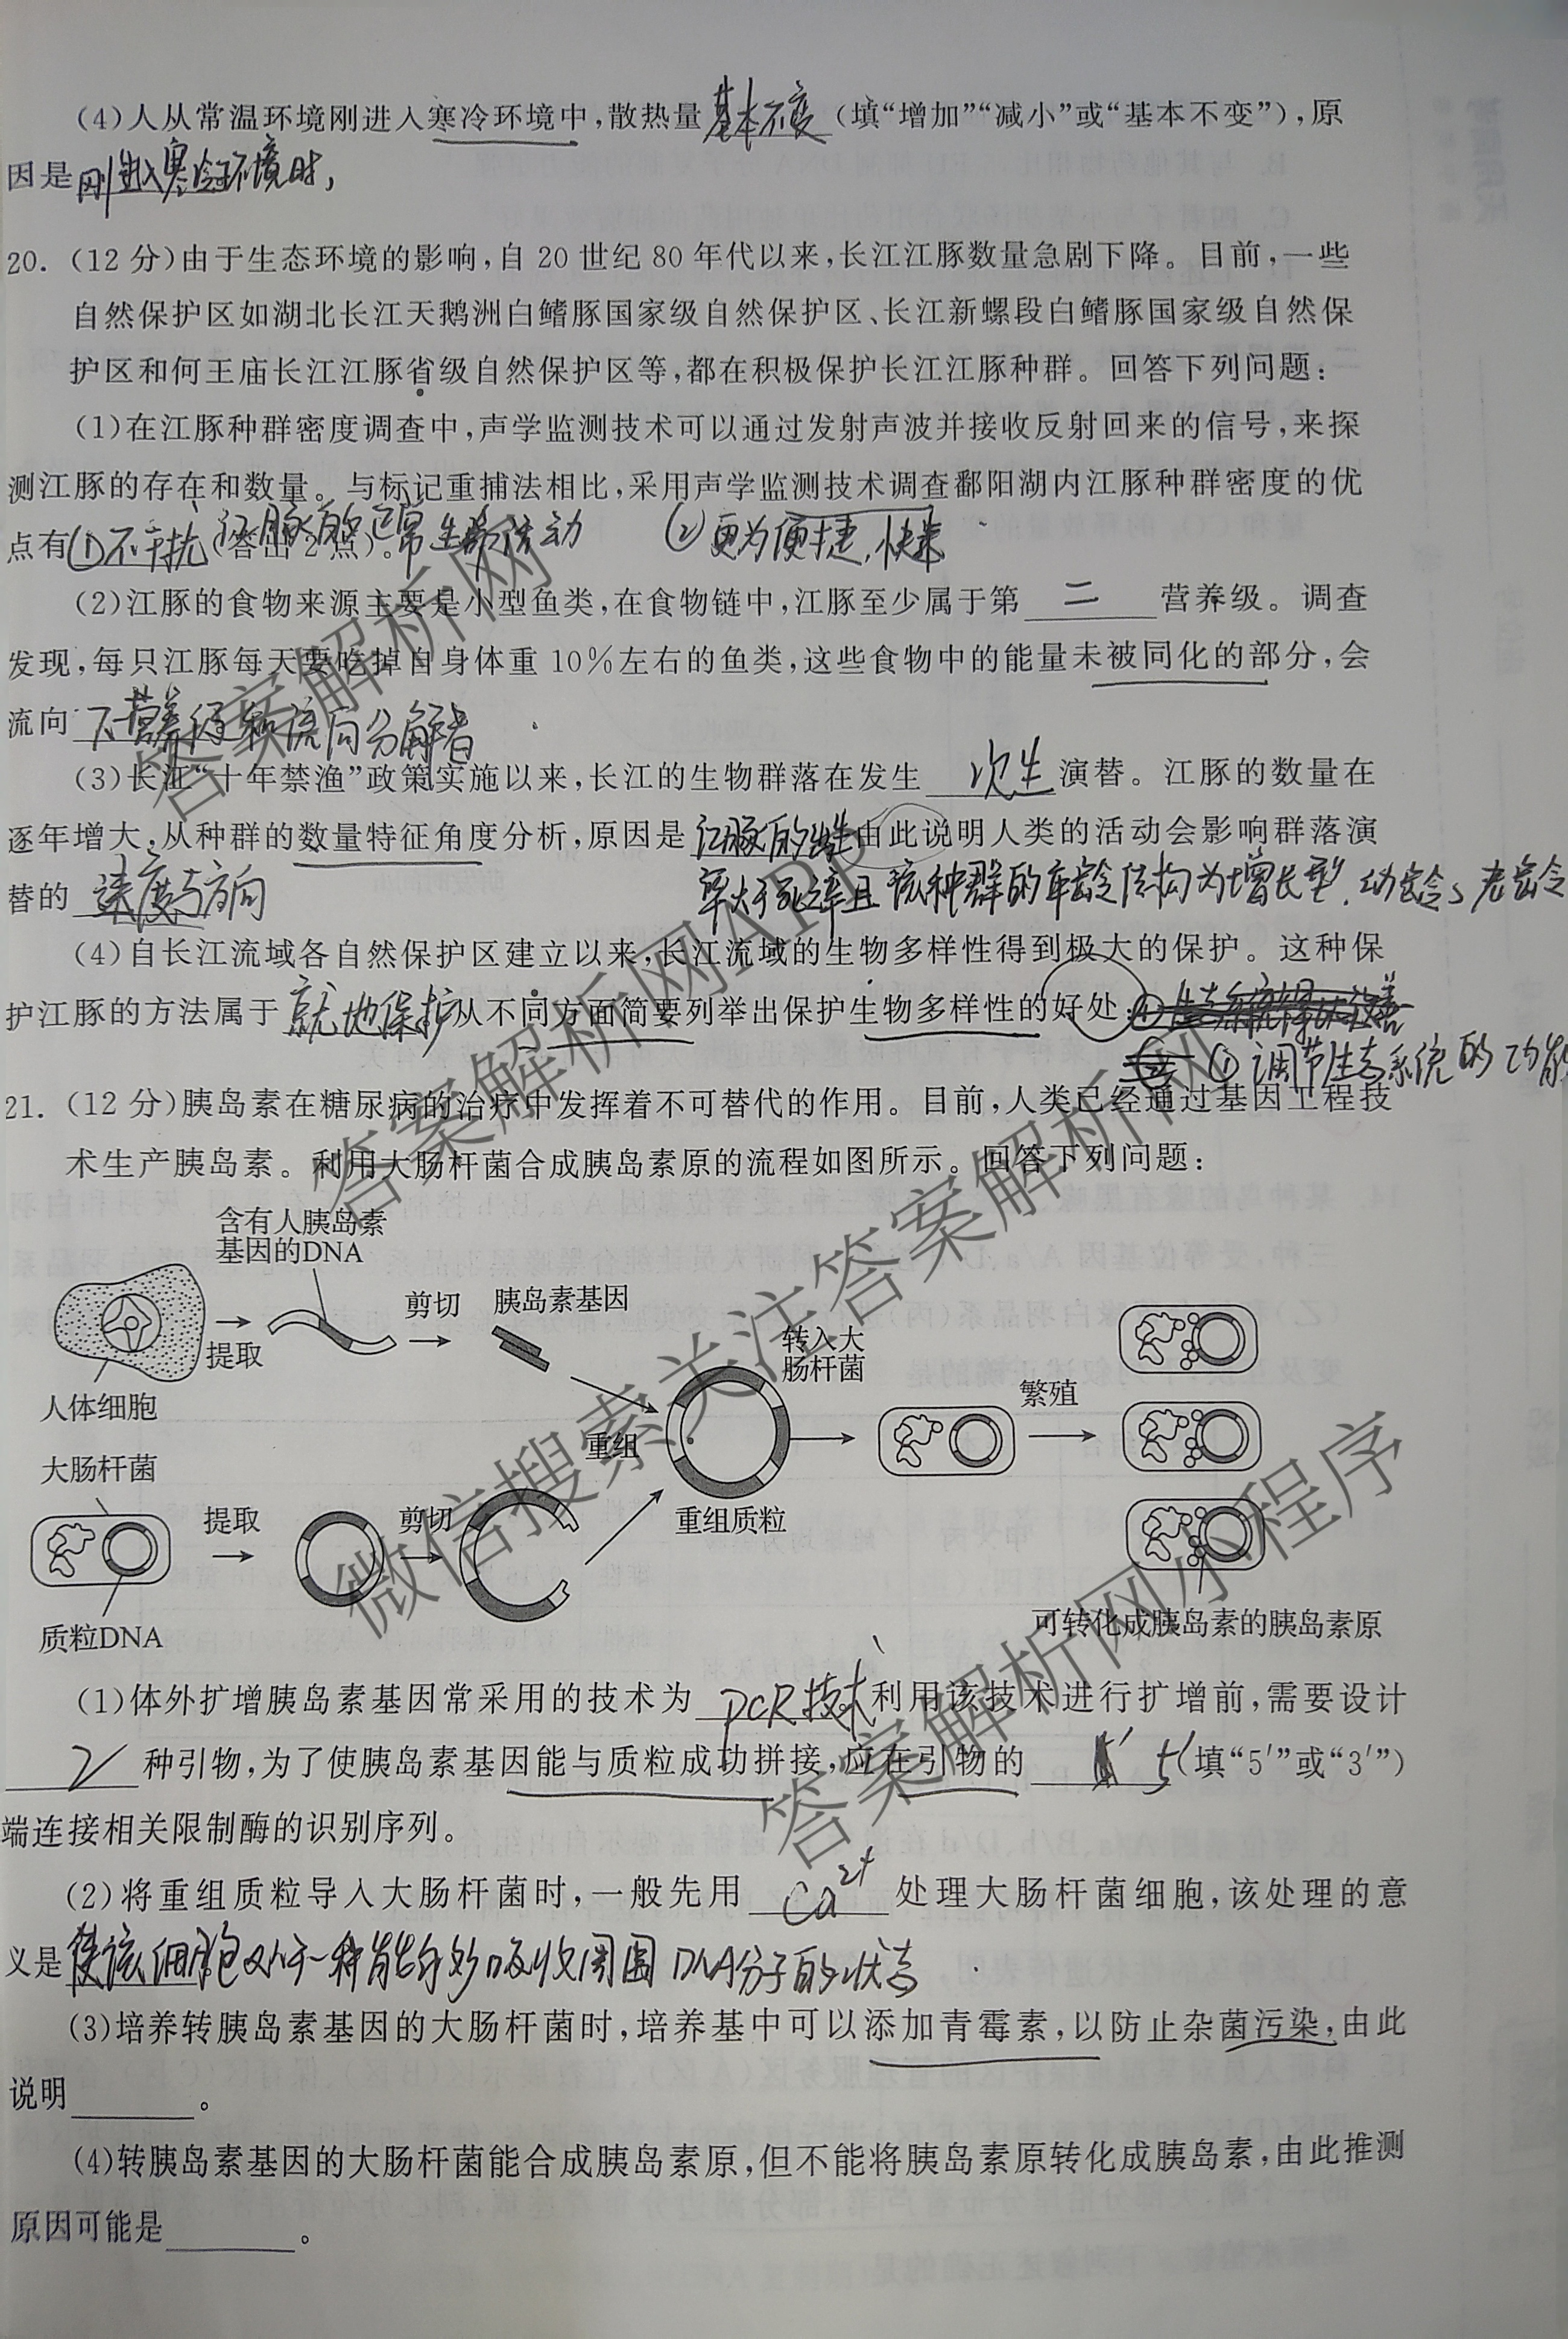 (4)人从常温环境刚进入寒冷环境中,散热量基本不变(填“增加”“减小”或“基本不变”),原
因是刚进入寒冷环境时,
20. (12 分)由于生态环境的影响,自 20 世纪 80 年代以来,长江江豚数量急剧下降。目前,一些
自然保护区如湖北长江天鹅洲白鳍豚国家级自然保护区、长江新螺段白鳍豚国家级自然保
护区和何王庙长江江豚省级自然保护区等,都在积极保护长江江豚种群。回答下列问题:
(1)在江豚种群密度调查中,声学监测技术可以通过发射声波并接收反射回来的信号,来探
测江豚的存在和数量。与标记重捕法相比,采用声学监测技术调查鄱阳湖内江豚种群密度的优
点有①不干扰江豚的正常生命活动 ②更为便捷,快速
(答出 2 点)。
(2)江豚的食物来源主要是小型鱼类,在食物链中,江豚至少属于第 二 营养级。调查
发现,每只江豚每天要吃掉自身体重 10%左右的鱼类,这些食物中的能量未被同化的部分,会
流向下一营养级和流向分解者
(3)长江“十年禁渔”政策实施以来,长江的生物群落在发生 次生 演替。江豚的数量在
逐年增大,从种群的数量特征角度分析,原因是江豚的出生由此说明人类的活动会影响群落演
率大于死亡率且该种群的年龄结构为增长型,幼龄、老龄
替的 速度与方向
(4)自长江流域各自然保护区建立以来,长江流域的生物多样性得到极大的保护。这种保
护江豚的方法属于 就地保护。从不同方面简要列举出保护生物多样性的好处:
①调节生态系统的功能
21. (12 分)胰岛素在糖尿病的治疗中发挥着不可替代的作用。目前,人类已经通过基因工程技
术生产胰岛素。利用大肠杆菌合成胰岛素原的流程如图所示。回答下列问题:
含有人胰岛素
基因的DNA
剪切
胰岛素基因
提取
转入大
肠杆菌
人体细胞
繁殖
重组
大肠杆菌
提取
剪切
重组质粒
质粒DNA
可转化成胰岛素的胰岛素原
(1)体外扩增胰岛素基因常采用的技术为 PCR技术。利用该技术进行扩增前,需要设计
2 种引物,为了使胰岛素基因能与质粒成功拼接,应在引物的 5′(填“5′”或“3′”)
端连接相关限制酶的识别序列。
(2)将重组质粒导入大肠杆菌时,一般先用 Ca²⁺ 处理大肠杆菌细胞,该处理的意
义是使该细胞处于一种能够吸收周围DNA分子的状态
(3)培养转胰岛素基因的大肠杆菌时,培养基中可以添加青霉素,以防止杂菌污染,由此
说明______。
(4)转胰岛素基因的大肠杆菌能合成胰岛素原,但不能将胰岛素原转化成胰岛素,由此推测
原因可能是______。
答案解析网
答案解析网APP
微信搜索关注答案解析网
答案解析网小程序